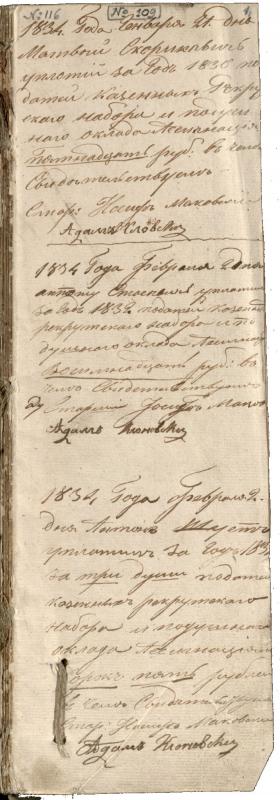 №: 116 № 209 1.
1834. Года Генваря 21. дня
Матвей Скориковичь
уплотил за Годъ 1830 по
датей казенныхъ Рекру
скаго набора и подуш
наго оклада Ассигнац
пятнадцать руб: в чемъ
Свидетельствуемъ
Стар: Иосифъ Маковски
Адамъ
1834 Года Февраля 2 дня
уплотил
за Годъ 1832 податей казен
рекрутскаго набора и по
душнаго оклада Ассигнац
восемнадцать руб: въ
чемъ Свидетельствуемъ
Старший Иосифъ Маков
Адамъ Клоневски
1834 Года Февраля 2.
дня Антонъ Шустъ
уплотилъ за Годъ 183
за три души податей
казенныхъ рекрутскаго
набора и подушнаго
оклада Ассигнацiею
сорокъ пять рублей
в чемъ Свидетельствуемъ
Стар: Иосифъ Маковски
Адамъ Клоневски